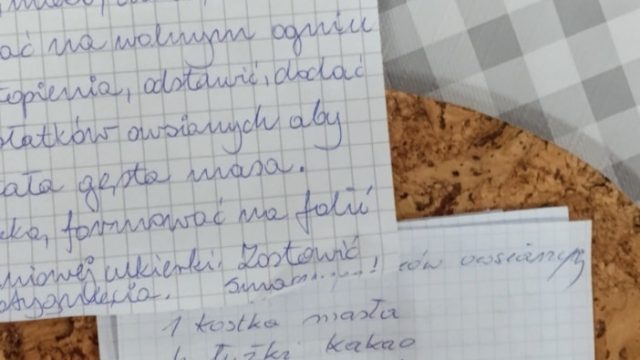 ać na wolnym ogniu
topienia, odstawić, dodać
płatków owsianych aby
ała gęsta masa.
formować na folii
niowej cukierki. Zostawić
ów owsianych
1 kostka masła
4 łyżki kakao